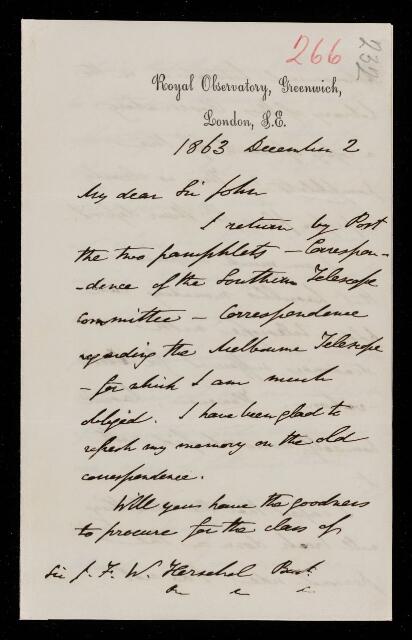 266
232
Royal Observatory, Greenwich,
London, S.E.
1863 December 2
My dear Sir John
I return by Post
the two pamphlets – Correspon-
-dence of the Southern Telescope
Committee – Correspondence
regarding the Melbourne Telescope
– for which I am much
obliged. I have been glad to
refresh my memory on the old
correspondence.
Will you have the goodness
to procure for the class of
Sir J. F. W. Herschel Bart.